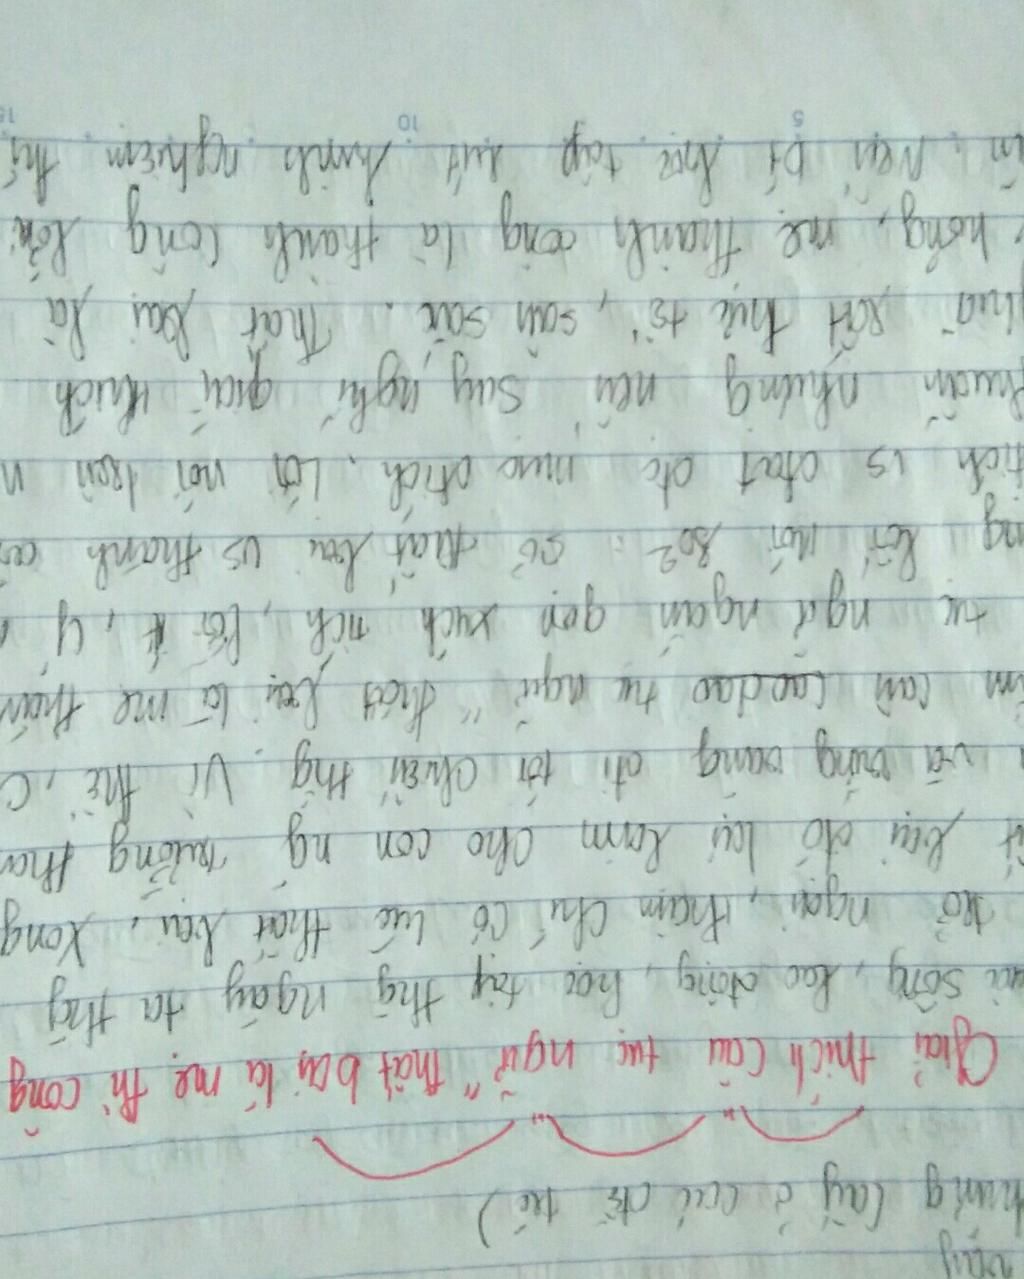 vậy
chung (lấy ở các đề trc)
Giải thích câu tục ngữ "thất bại là mẹ th công
sống, lao động, học tập thg ngày ta thg
trở ngại, thậm chí có lúc thất bại, xong
bại đó lại làm cho con ng trưởng thàn
và vững vàng đi tới chiến thg. Vì thế, c
câu ca dao tục ngữ "thất bại là mẹ thàn
tục ngữ ngắn gọn xúch tích, lời ít, ý n
ng lời nói so² : só thất bại vs thành cô
tích vs đạt đc mục đích. Lời nói trên n
thuẫn nhưng nếu suy nghĩ giải thích
rất thực tế, sâu sắc. Thất bại là
hỏng, mẹ thành công là thành công lớn
Nên bị thế tập rút kinh nghiệm thì
5 10 15